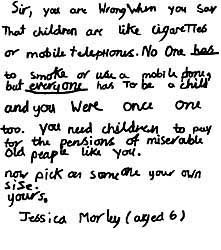 Sir, you are Wrong When you say
That children are like cigarettes
or mobile telephones. No One has
to smoke or use a mobile phone,
but everyone has To be a child
and you Were once one
too. You need children to pay
for the pensions of miserable
old peaple like you.
now pick on someone your own
sise.
yours.
Jessica Morley (aged 6)